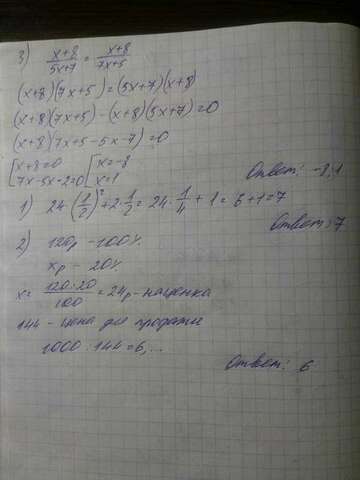 3) x+8/5x+7 = x+8/7x+5
(x+8)(7x+5)=(5x+7)(x+8)
(x+8)(7x+5)-(x+8)(5x+7)=0
(x+8)(7x+5-5x-7)=0
[x+8=0 [x=-8
[7x-5x-2=0 [x=1
Ответ: -8;1
1) 24·(1/2)²+2·1/2=24·1/4+1=6+1=7
Ответ: 7
2) 120р -100%
xр - 20%
x= 120·20/100 =24р-наценка
144 - цена для продажи
1000:144=6,...
Ответ: 6